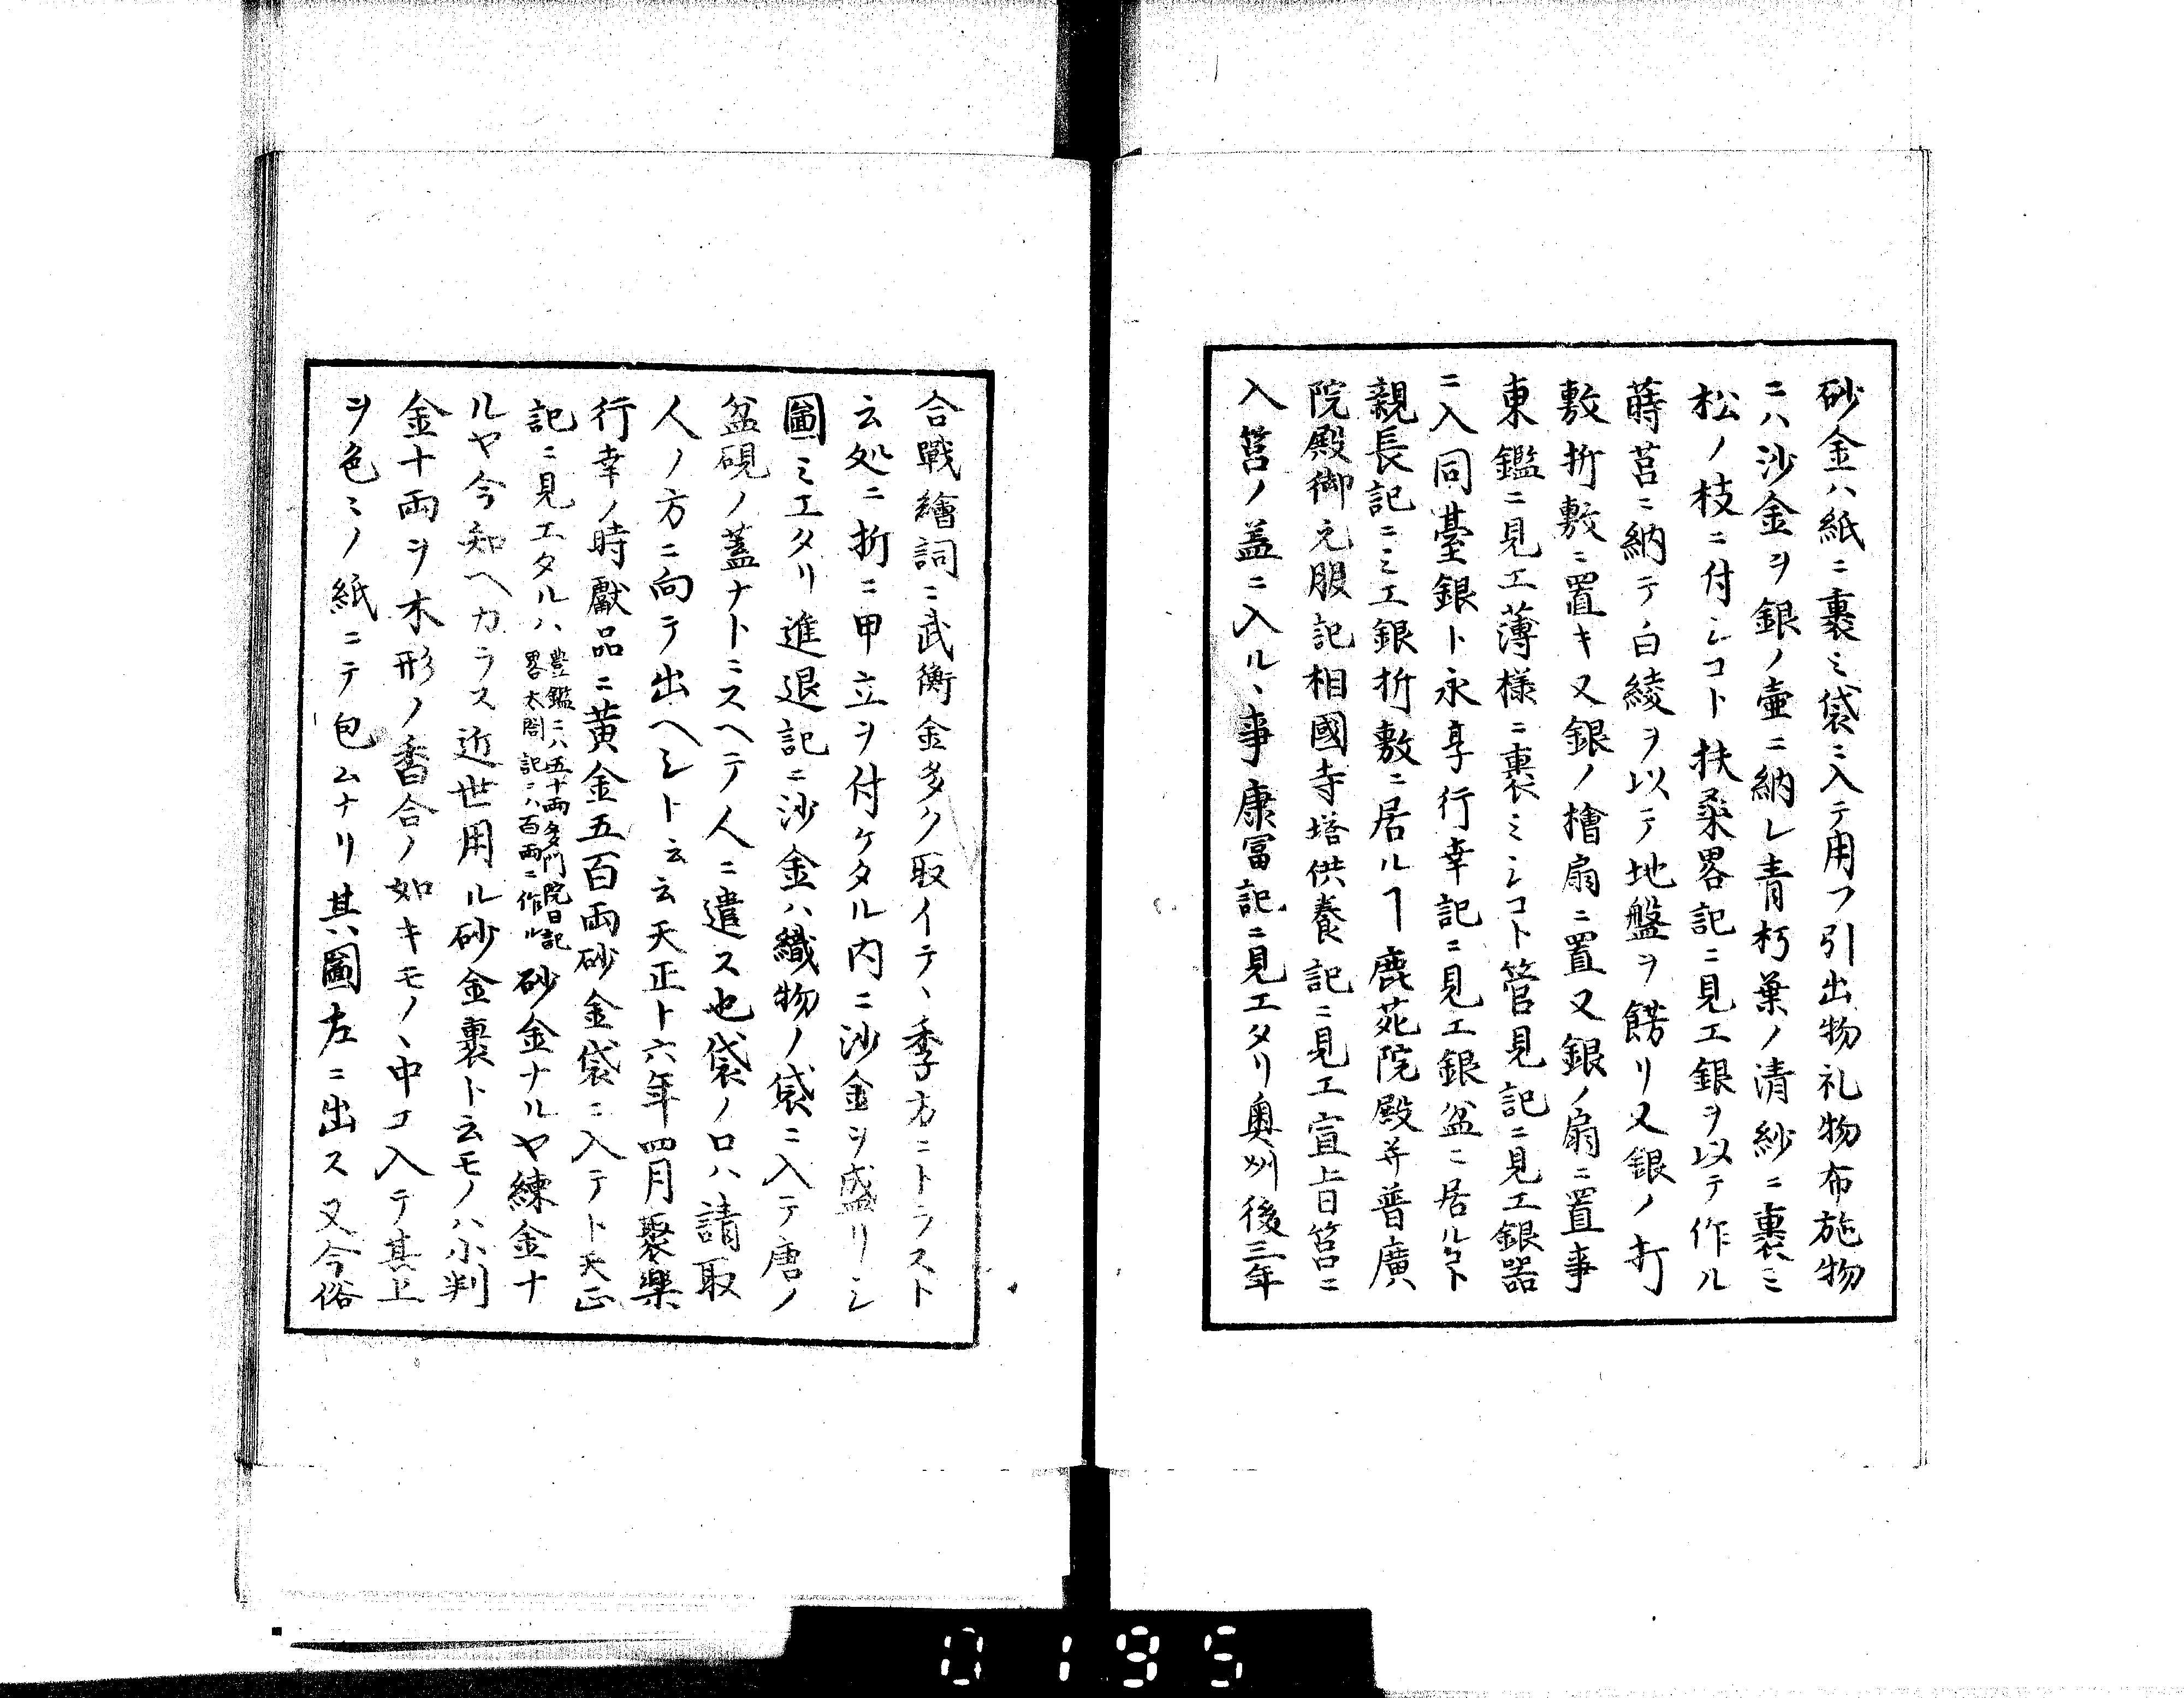 砂金ハ紙ニ裹ミ袋ニ入テ用フ引出物礼物布施物
ニハ沙金ヲ銀ノ壷ニ納レ青朽葉ノ清紗ニ裹ミ
松ノ枝ニ付シコト扶桑畧記ニ見エ銀ヲ以テ作ル
蒔莒ニ納テ白綾ヲ以テ地盤ヲ餝リ又銀ノ打
敷折敷ニ置キ又銀ノ檜扇ニ置又銀ノ扇ニ置事
東鑑ニ見エ薄様ニ裹ミシコト管見記ニ見エ銀器
ニ入同䑓銀ト永享行幸記ニ見エ銀盆ニ居ルコト
親長記ニミエ銀折敷ニ居ルヿ鹿苑院殿并普廣
院殿御元服記相國寺塔供養記ニ見エ宣旨筥ニ
入筥ノ盖ニ入ル丶事康冨記ニ見エタリ奥州後三年
合戰繪詞ニ武衡金多ク取イテ丶季方ニトラスト
云処ニ折ニ甲立ヲ付ケタル内ニ沙金ヲ盛リシ
圖ミエタリ進退記ニ沙金ハ織物ノ袋ニ入テ唐ノ
盆硯ノ蓋ナトニスヘテ人ニ遣ス也袋ノ口ハ請取
人ノ方ニ向テ出ヘシト云云天正十六年四月聚樂
行幸ノ時獻品ニ黄金五百両砂金袋ニ入テト天正
記ニ見エタルハ豊鑑ニハ五十両多門院日記畧太閤記ニハ百両ニ作ル砂金ナルヤ練金ナ
ルヤ今知ヘカラス近世用ル砂金裹ト云モノハ小判
金十両ヲ木形ノ香合ノ如キモノ丶中コ入テ其上
ヲ色ミノ紙ニテ包ムナリ其圖左ニ出ス又今俗
0195